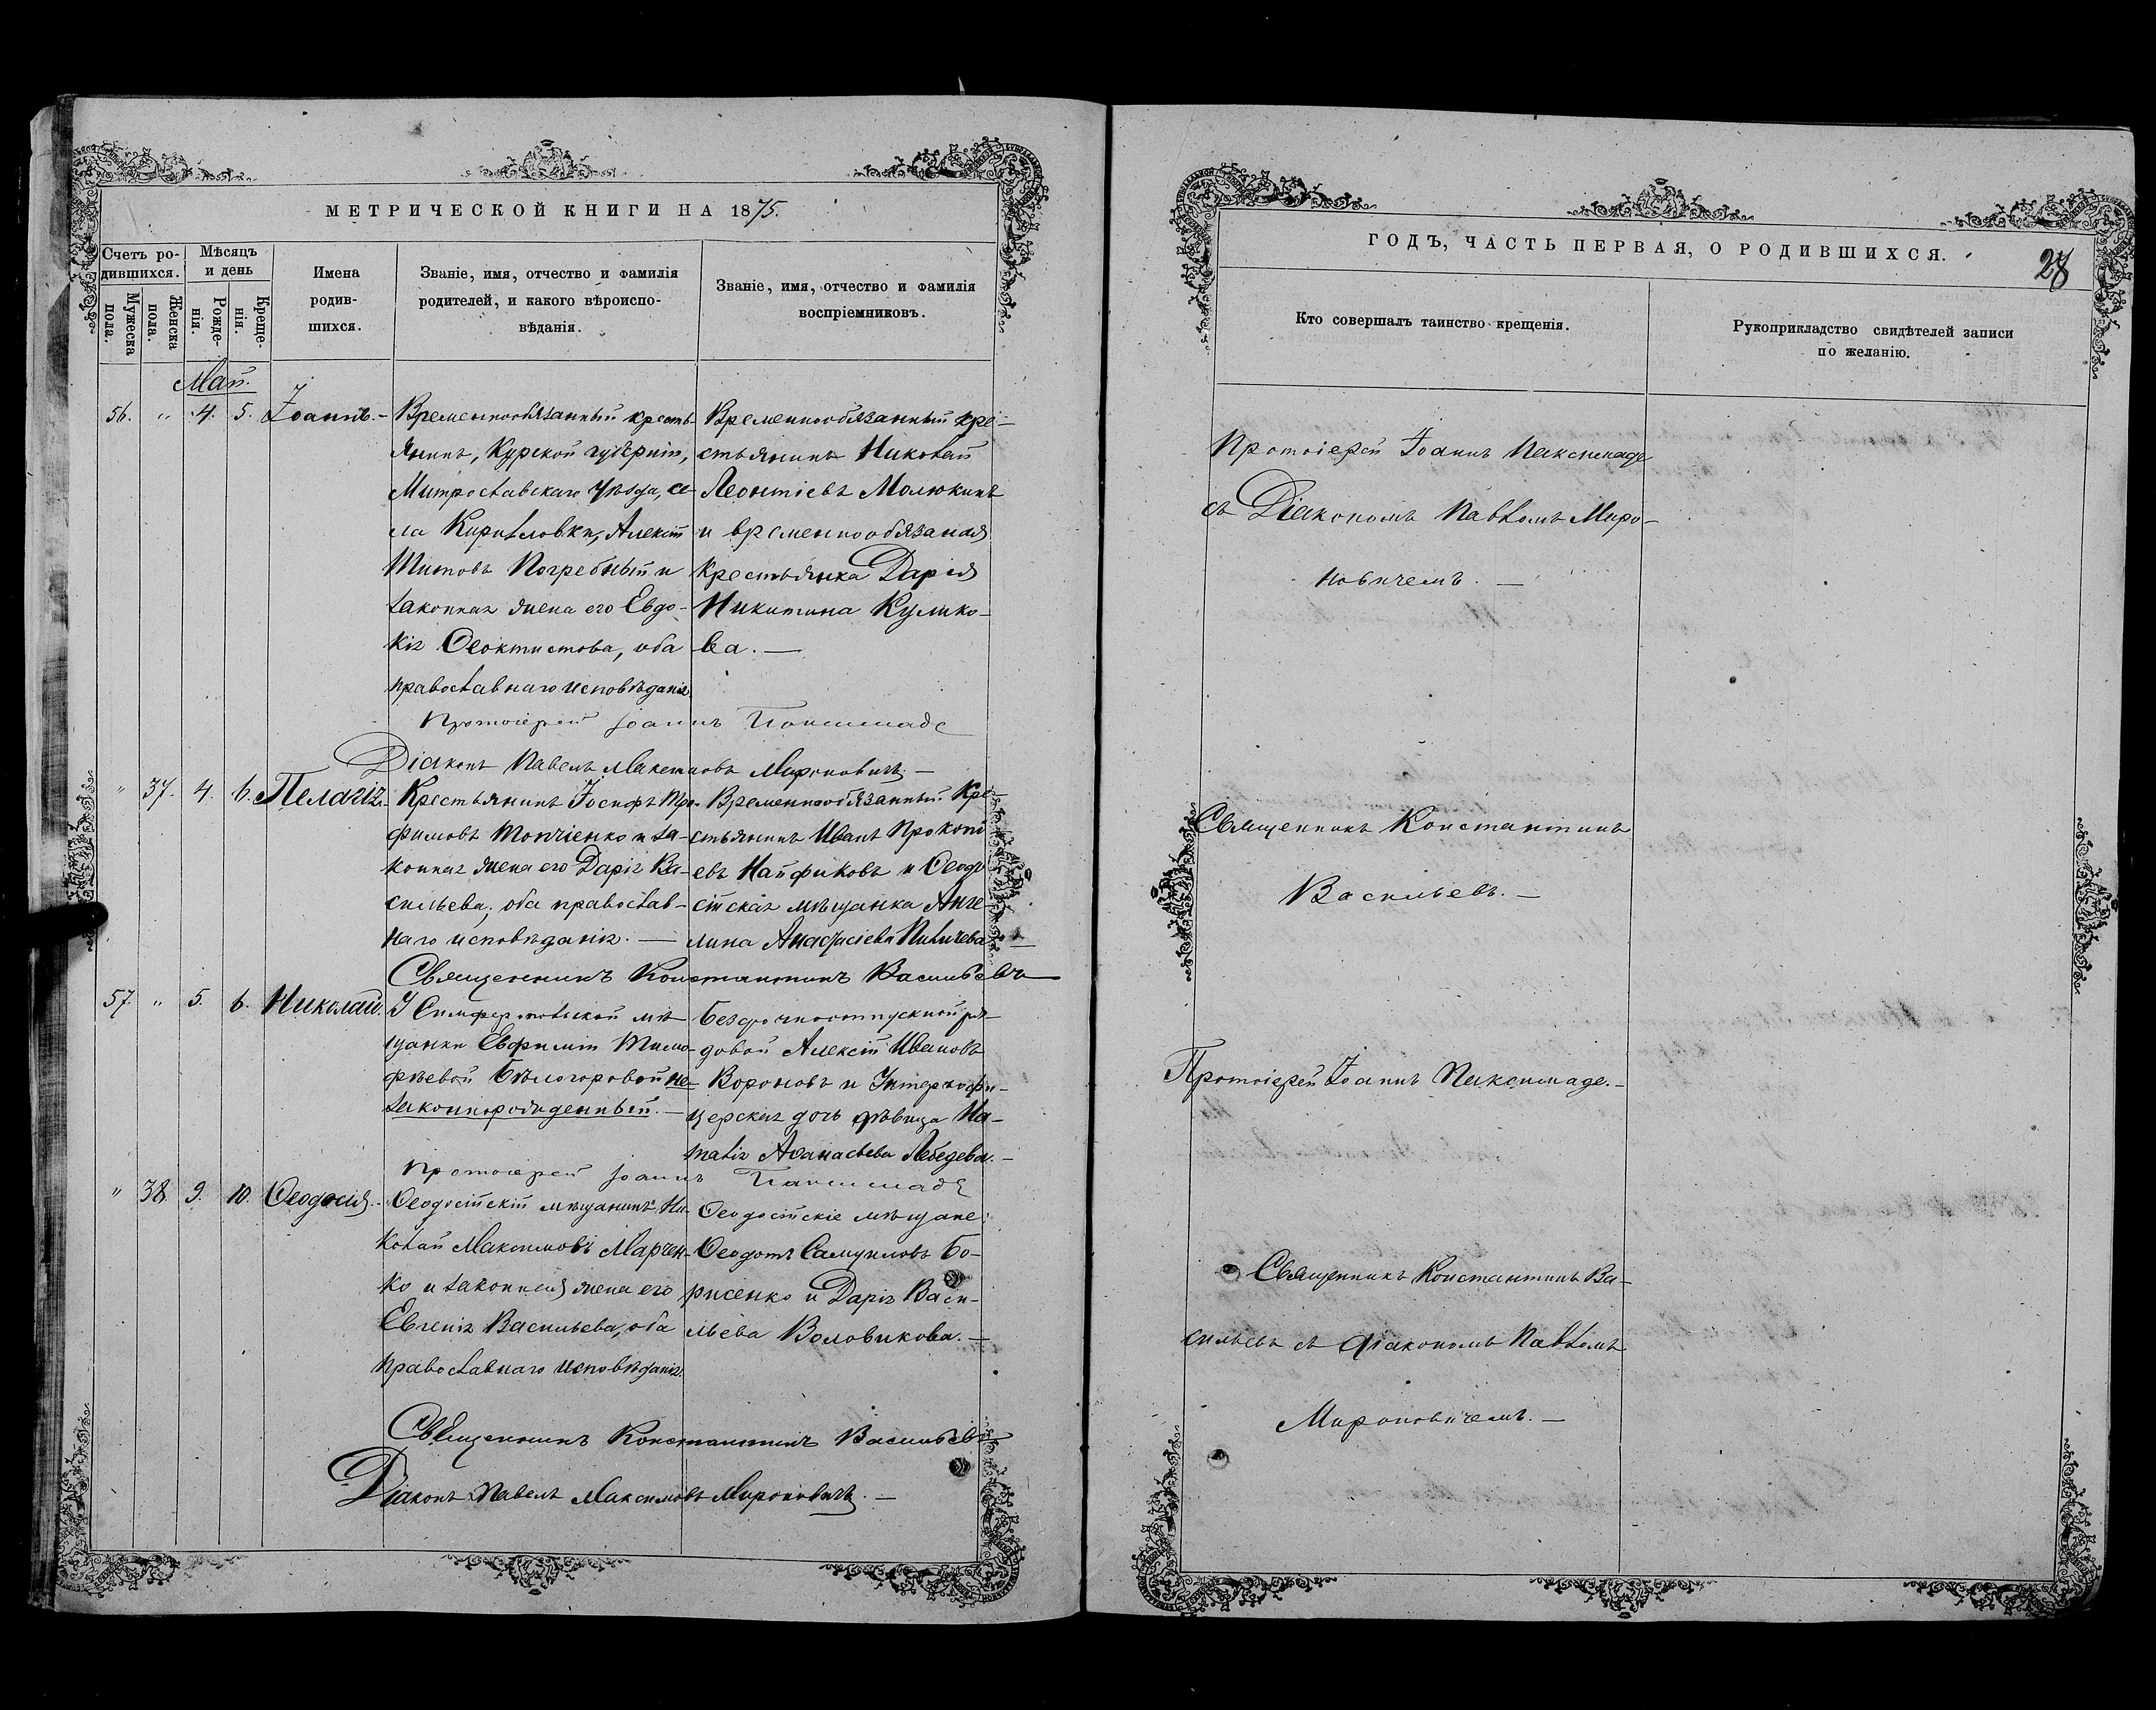 МЕТРИЧЕСКОЙ КНИГИ НА 1875.
Счетъ ро-
дившихся.
Мужеска
пола.
Женска
пола.
Мѣсяцъ
и день
Рожде-
нія.
Креще-
нія.
Имена
родив-
шихся.
Званіе, имя, отчество и фамилія
родителей, и какого вѣроиспо-
вѣданія.
Званіе, имя, отчество и фамилія
воспріемниковъ.
Май.
56. " 4. 5. Іоаннъ.-
Временнообязанный кресть-
янинъ, Курской губерніи,
Митрославскаго уѣзда, се-
ла Кириловки, Алексѣй
Титовъ Погребный и
законная жена его Евдо-
кія Ѳеоктистова, оба
православнаго исповѣданія.
Временнообязанный кре-
стьянинъ Николай
Леонтіевъ Малюкинъ
и временнообязаная
крестьянка Дарія
Никитина Кулико-
ва. —
Протоіерей Іоаннъ
Діаконъ Павелъ Максимовъ Мироновичъ. —
" 37. 4. 6. Пелагія.
Крестьянинъ Іосифъ Тро-
фимовъ Топчіенко и за-
конная жена его Дарія Ва-
сильева, оба православ-
наго исповѣданія. —
Временнообязанный кре-
стьянинъ Иванъ Прокопі
евъ Найфиковъ и Ѳеодо
сійская мѣщанка Анге-
лина Анастасіева
Священникъ Константинъ Васильевъ
57. " 5. 6. Николай.
У Симферопольской мѣ-
щанки Евфиміи Тимо-
фѣевой Бѣлогоровой не-
законнорожденный. —
Безсрочноотпускной ря-
довой Алексѣй Ивановъ
Вороновъ и Унтеръ-офи-
церская дочь дѣвица На-
талія Аѳанасьева Лебедева. —
Протоіерей Іоаннъ
" 38. 9. 10. Ѳеодосія.-
Ѳеодосійскій мѣщанинъ Ни-
колай Максимовъ Марчен-
ко и законная жена его
Евгенія Васильева, оба
православнаго исповѣданія.
Ѳеодосійскіе мѣщане:
Ѳеодотъ Самуиловъ Бо-
рисенко и Дарія Васи-
льева Воловикова. —
Священникъ Константинъ Васильевъ
Діаконъ Павелъ Максимовъ Мироновичъ. —
ГОДЪ, ЧАСТЬ ПЕРВАЯ, О РОДИВШИХСЯ.
28
Кто совершалъ таинство крещенія.
Рукоприкладство свидѣтелей записи
по желанію.
Протоіерей Іоаннъ
съ Діакономъ Павломъ Миро-
новичемъ. —
Священникъ Константинъ
Васильевъ. —
Протоіерей Іоаннъ
Священникъ Константинъ Ва-
сильевъ съ діакономъ Павломъ
Мироновичемъ. —